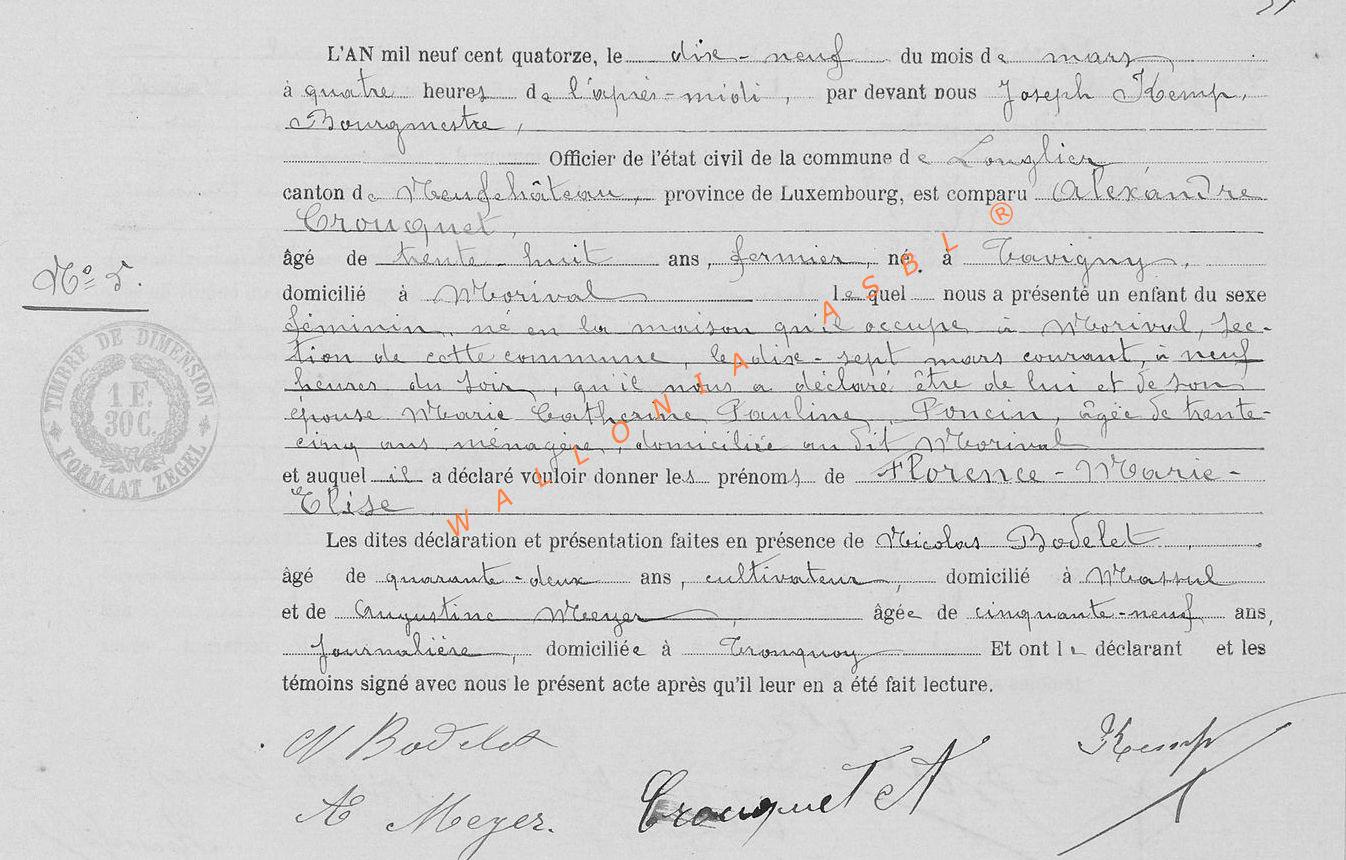 L'AN mil neuf cent quatorze, le dix-neuf du mois de mars
à quatre heures de l'après-midi, par devant nous Joseph Kemp,
Bourgmestre,
Officier de l'état civil de la commune de Longlier
canton de Neufchâteau, province de Luxembourg, est comparu Alexandre
Crouquet,
âgé de trente huit ans, fermier, né à Tavigny,
domicilié à Morival lequel nous a présenté un enfant du sexe
féminin, né en la maison qu'il occupe à Morival, sec-
tion de cette commune, le dix-sept mars courant, à neuf
heures du soir, qu'il nous a déclaré être de lui et de son
épouse Marie Catherine Pauline Poncin, âgée de trente-
cinq ans ménagère, domiciliée au dit Morival
et auquel il a déclaré vouloir donner les prénoms de Florence-Marie-
Elise
Les dites déclaration et présentation faites en présence de Nicolas Bodelet,
âgé de quarante-deux ans, cultivateur, domicilié à Massul
et de Augustine Meyer, âgée de cinquante-neuf ans,
journalière, domiciliée à Tronquoy Et ont le déclarant et les
témoins signé avec nous le présent acte après qu'il leur en a été fait lecture.
No 5.
TIMBRE DE DIMENSION
1 F.
30 C.
FORMAAT ZEGEL
WALLONIA ASBL ®
N Bodelet
Kemp
A Meyer.
Crouquet A